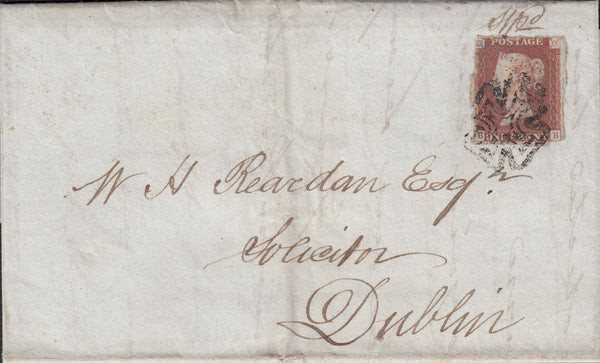 POSTAGE
ONE PENNY
B B
W H Reardan Esqr
Solicitor
Dublin